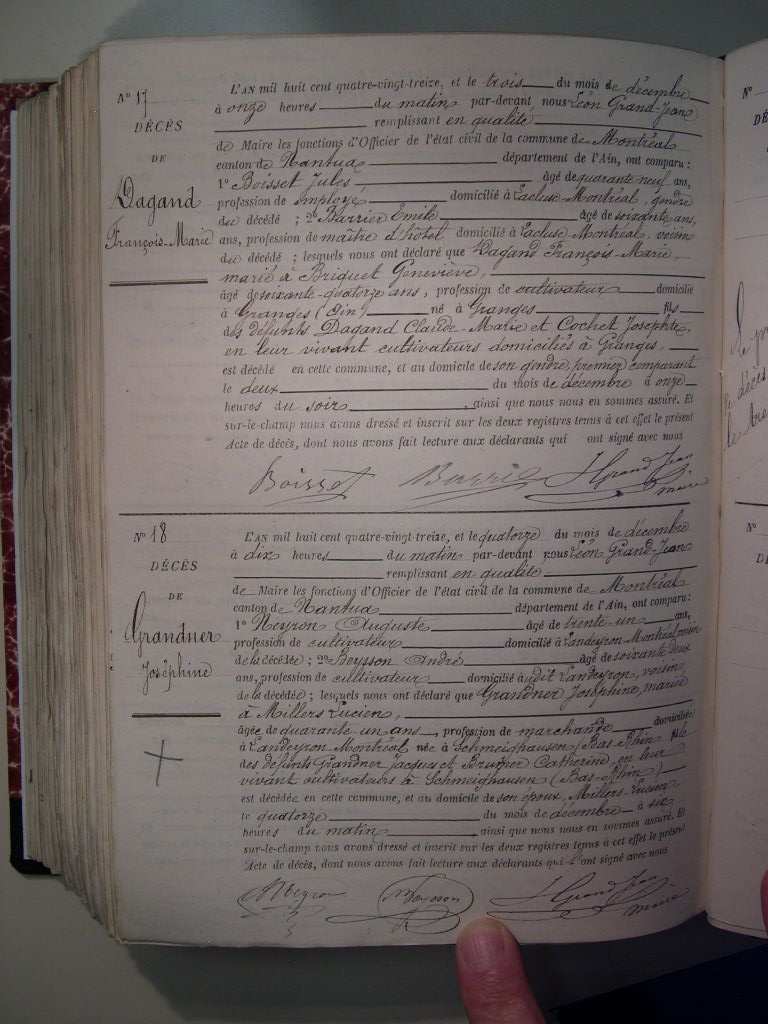 N° 17
DÉCÈS
DE
Dagand
François-Marie
L'AN mil huit cent quatre-vingt-treize, et le trois du mois de décembre
à onze heures du matin par-devant nous Léon Grand-Jean
remplissant en qualité
de Maire les fonctions d'Officier de l'état civil de la commune de Montréal
canton de Nantua département de l'Ain, ont comparu :
1° Boisset Jules âgé de quarante neuf ans,
profession de employé domicilié à Lacluse-Montréal, gendre
du décédé ; 2° Barrier Emile âgé de soixante ans,
ans, profession de maître d'hôtel domicilié à Lacluse Montréal, voisin
du décédé ; lesquels nous ont déclaré que Dagand François-Marie,
marié à Briquet Geneviève,
âgé de soixante-quatorze ans, profession de cultivateur domicilié
à Granges (Ain) né à Granges fils
des défunts Dagand Claude-Marie et Cochet Josephte,
en leur vivant cultivateurs domiciliés à Granges.
est décédé en cette commune, et au domicile de son gendre, premier comparant
le deux du mois de décembre à onze
heures du soir, ainsi que nous nous en sommes assuré. Et
sur-le-champ nous avons dressé et inscrit sur les deux registres tenus à cet effet le présent
Acte de décès, dont nous avons fait lecture aux déclarants qui ont signé avec nous
Boisset Barrie L Grand Jean
maire
N° 18
DÉCÈS
DE
Grandner
Joséphine
L'AN mil huit cent quatre-vingt-treize, et le quatorze du mois de décembre
à dix heures du matin par-devant nous Léon Grand-Jean
remplissant en qualité
de Maire les fonctions d'Officier de l'état civil de la commune de Montréal
canton de Nantua département de l'Ain, ont comparu :
1° Neyron Auguste âgé de trente-un ans,
profession de cultivateur domicilié à Landeyron Montréal, voisin
de la décédée ; 2° Beysson André âgé de soixante deux
ans, profession de cultivateur domicilié audit Landeyron, voisin
de la décédée ; lesquels nous ont déclaré que Grandner Joséphine, mariée
à Millers Lucien,
âgée de quarante un ans, profession de marchande domiciliée
à Landeyron-Montréal née à Schmeighausen (Bas-Rhin) fille
des défunts Grandner Jacques et Brunner Catherine, en leur
vivant cultivateurs à Schmeighausen (Bas-Rhin)
est décédée en cette commune, et au domicile de son époux, Millers Lucien
le quatorze du mois de décembre à six
heures du matin ainsi que nous nous en sommes assuré. Et
sur-le-champ nous avons dressé et inscrit sur les deux registres tenus à cet effet le présent
Acte de décès, dont nous avons fait lecture aux déclarants qui ont signé avec nous
Neyron Beysson L Grand Jean
maire
N°
N°